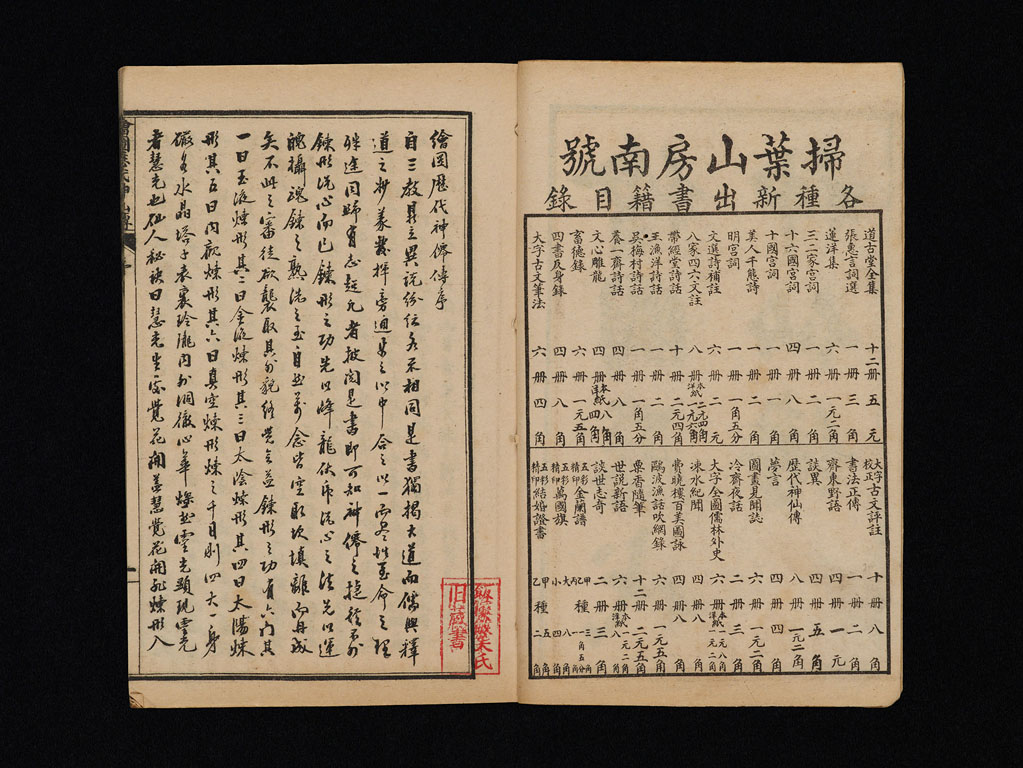 掃葉山房南號
各種新出書籍目錄
道古堂全集 十二册 五元
張惠言詞選 一册 三角
蓮洋集 六册 一元二角
三二家宮詞 一册 二角
十六國宮詞 四册 八角
十國宮詞 一册 一角
美人千態詩 一册 二角
明宮詞 一册 一角五分
文選詩補註 六册 二元
八家四六文註 八册
帶經堂詩話 十册 二元四角
王漁洋詩話 二册 二角
吳梅村詩話 一册 一角五分
養一齋詩話 四册 八角
文心雕龍 四册
畜德錄 六册 一元五角
四書反身錄 四册 八角
大字古文筆法 六册 四角
大字校正古文評註 十册 八角
書法正傳 一册 二角
齊東野語 四册 一元
談異 四册 五角
歷代神仙傳 八册 一元二角
夢言 四册 四角
圖畫見聞誌 六册 一元二角
冷齋夜話 二册 三角
大字全圖儒林外史 六册
涑水紀聞 四册 八角
費曉樓百美圖詠 四册 八角
鷗波漁話吹網錄 六册 一元五角
粟香隨筆 十二册 二元五角
世說新語 六册
談世志奇 二册 三角
五彩精印金蘭譜
五彩精印萬國旗
五彩精印結婚證書
繪圖歷代神僊傳序
自三教鼎立異說紛紜各不相同是書獨揭大道而儒與釋
道之妙義發揮旁通身之以中合之以一而尽性至命之理
殊途同歸有志超凡者披閱是書即可知神僊之捷徑不外
錬形沉心而已錬形之功先以降龍伏虎沉心之法先以運
魄攝魂錬之熟沉之至自然萬念皆空取坎填離而丹成
矣不此之審徒欲襲取其外貌終無益錬形之功有六門其
一曰玉液煉形其二曰金液煉形其三曰太陰煉形其四曰太陽煉
形其五曰內觀煉形其六曰真空煉形煉之千日則四大一身
儼如水晶塔子表裏玲瓏內外洞徹心華燦然靈光顯現靈光
者慧光也仙人秘訣曰慧光生處覺花開蓋慧覺花開非煉形入
旧藏書